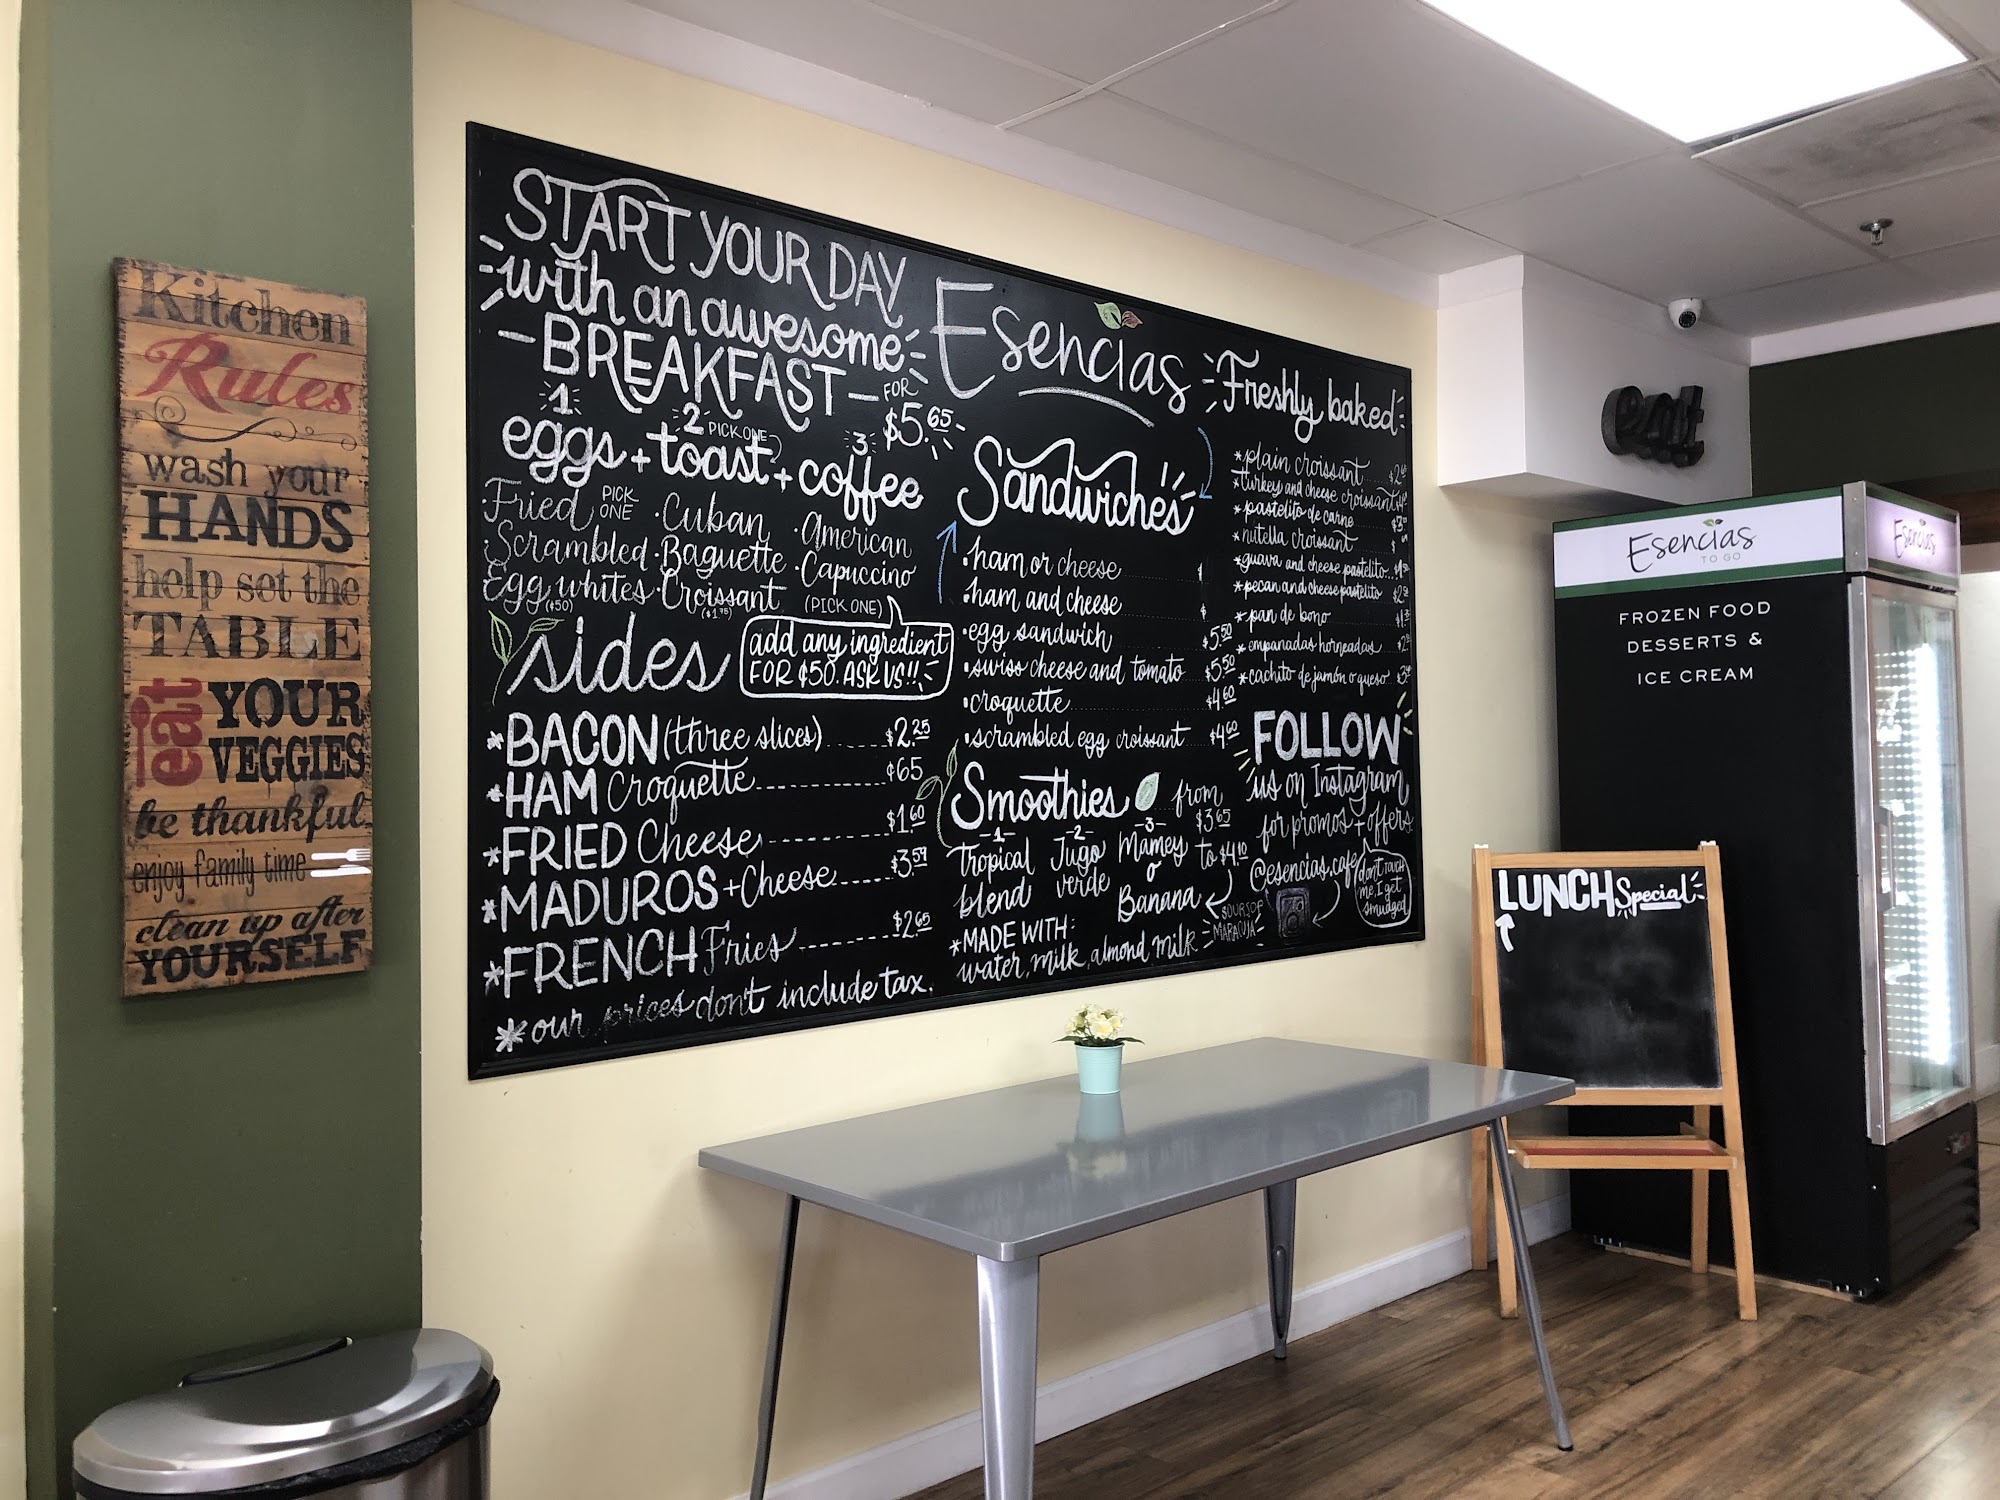 Kitchen
Rules
wash your
HANDS
help set the
TABLE
eat YOUR
VEGGIES
be thankful
enjoy family time
clean up after
YOURSELF
START YOUR DAY
with an awesome
BREAKFAST
FOR
$5.65
1 2 3
PICK ONE
eggs + toast + coffee
·Fried PICK ONE ·Cuban ·American
·Scrambled ·Baguette ·Capuccino
·Egg whites ·Croissant (PICK ONE)
($50) ($1.75)
sides
add any ingredient
FOR $50. ASK US!!
*BACON (three slices) $2.25
*HAM Croquette ¢65
*FRIED Cheese $1.60
*MADUROS + Cheese $3.59
*FRENCH Fries $2.65
*our prices don't include tax.
Esencias
Sandwiches
·ham or cheese
·ham and cheese $
·egg sandwich $5.50
·swiss cheese and tomato $5.50
·croquette $4.60
·scrambled egg croissant $4.60
Smoothies from
$3.65
to $4.10
-1- -2- -3-
Tropical blend
Jugo verde
Mamey o Banana
SOURSOP
MARACUJA
*MADE WITH:
water, milk, almond milk
Freshly baked
*plain croissant
*turkey and cheese croissant
*pastelito de carne
*nutella croissant $
*guava and cheese pastelito
*pecan and cheese pastelito
*pan de bono
*empanadas horneadas
*cachito de jamón o queso
FOLLOW
us on Instagram
for promos + offers
@esencias.cafe
don't touch
me, I get
smudged
eat
LUNCH Special
Esencias
TO GO
FROZEN FOOD
DESSERTS &
ICE CREAM
Esencias